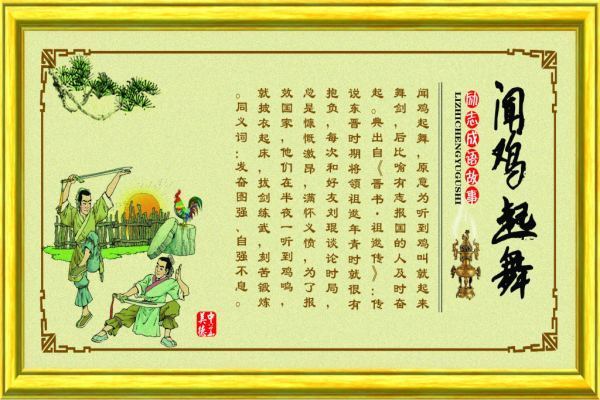 闻鸡起舞
励志成语故事
LIZHICHENGYUGUSHI
闻鸡起舞，原意为听到鸡叫就起来
舞剑，后比喻有志报国的人及时奋
起。典出自《晋书·祖逖传》：传
说东晋时期将领祖逖年青时就很有
抱负，每次和好友刘琨谈论时局，
总是慷慨激昂，满怀义愤，为了报
效国家，他们在半夜一听到鸡鸣，
就披衣起床，拔剑练武，刻苦锻炼
。同义词：发奋图强、自强不息。
中华
美德